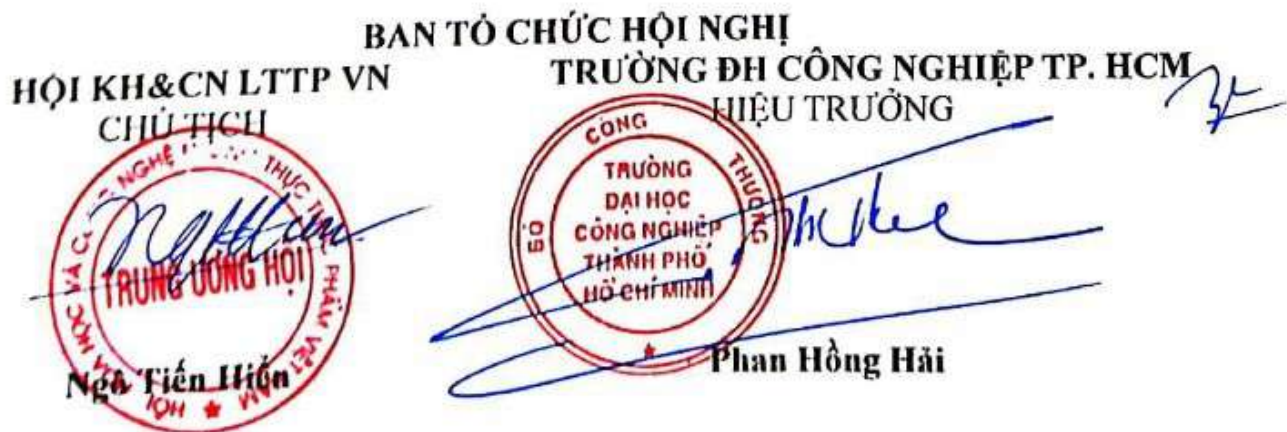 BAN TỔ CHỨC HỘI NGHỊ
HỘI KH&CN LTTP VN
CHỦ TỊCH
TRUNG ƯƠNG HỘI
Ngô Tiến Hiển
TRƯỜNG ĐH CÔNG NGHIỆP TP. HCM
HIỆU TRƯỞNG
BỘ CÔNG THƯƠNG
TRƯỜNG
ĐẠI HỌC
CÔNG NGHIỆP
THÀNH PHỐ
HỒ CHÍ MINH
Phan Hồng Hải